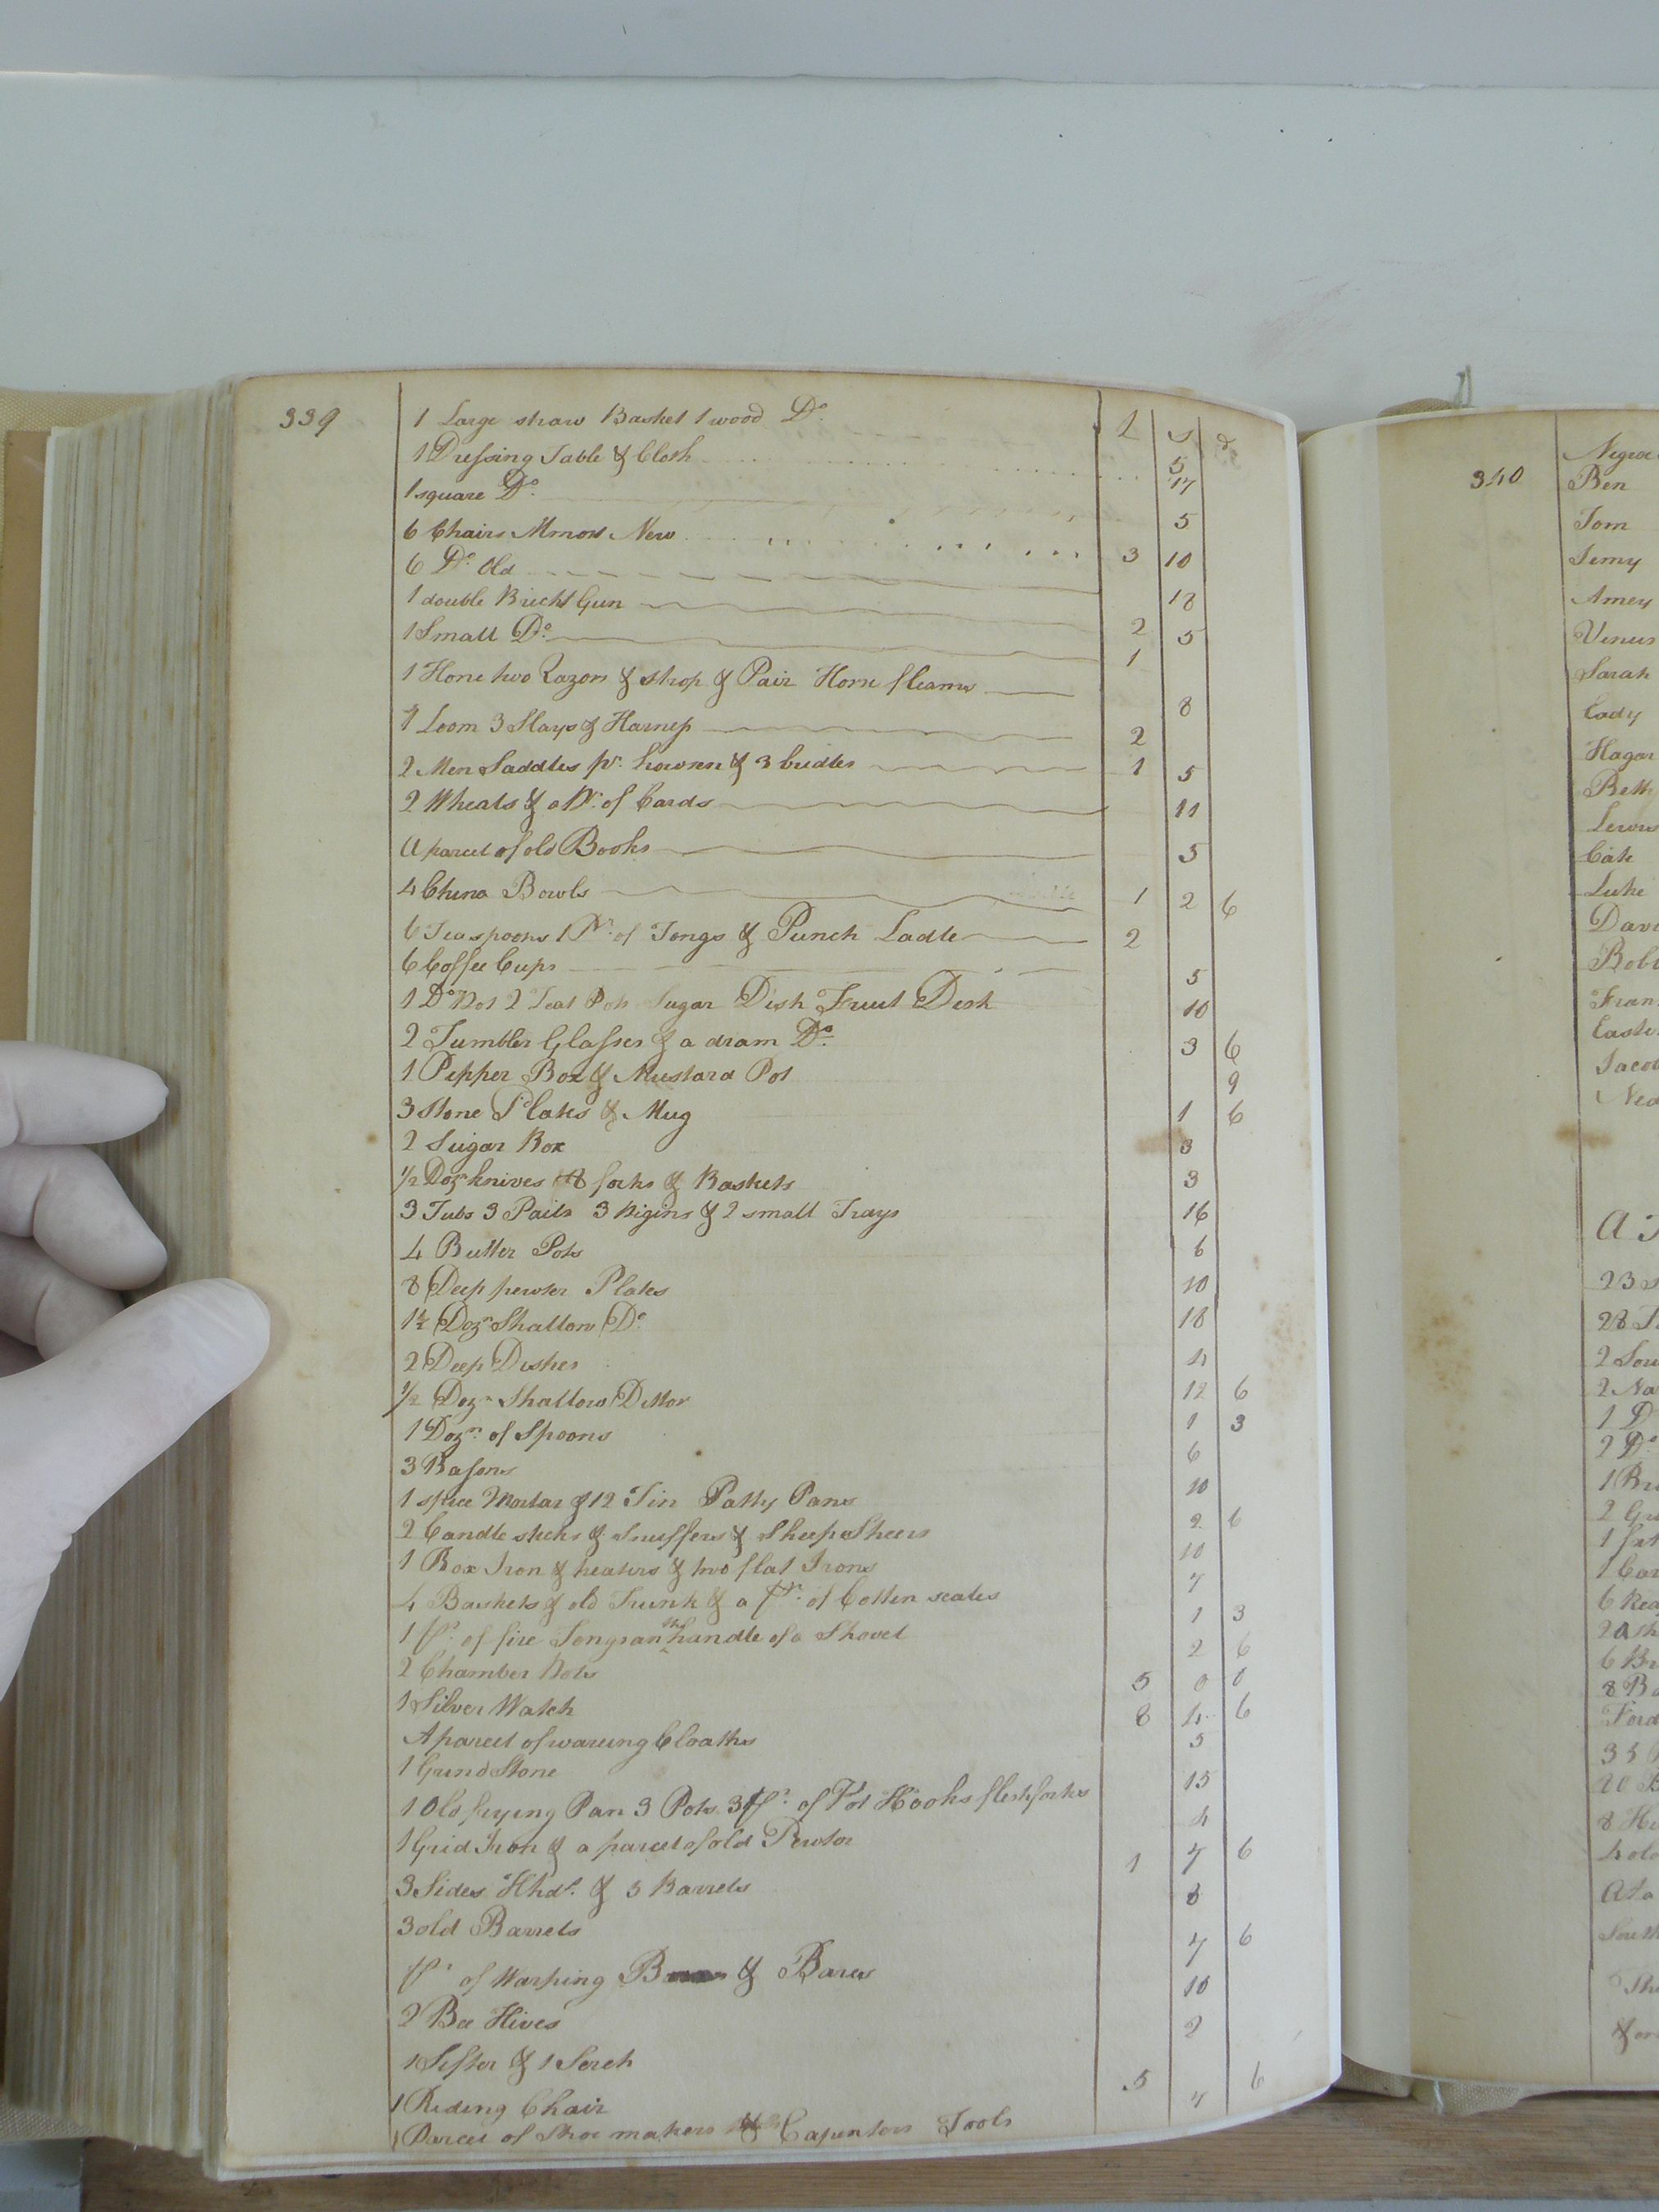 339
1 Large straw Basket 1 wood Do. L s d
1 Dressing Table & Cloth 5
1 square Do. 17
6 Chairs Almost New 5
6 Do. Old 3 10
1 double Gun 18
1 Small Do. 2 5
1 Hone two Razors & strop & Pair Horse fleams 1
1 Loom 3 Slays & Harness 8
2 Men Saddles pr. & 3 bridles 2
2 Wheals & a Pr. of Cards 1 5
11
A parcel of old Books 5
4 China Bowls 1 2 6
6 Tea spoons 1 Pr. of Tongs & Punch Ladle 2
6 Coffee Cups 5
1 Do Pot 2 Teat Pots Sugar Dish Fruit Dish 10
2 Tumbler Glasses & a dram Do. 3 6
1 Pepper Box & Mustard Pot 9
3 Stone Plates & Mug 1 6
2 Sugar Box 3
1/2 Dozn knives 8 forks & Baskets 3
3 Tubs 3 Pails 3 Pigins & 2 small Trays 16
4 Butter Pots 6
8 Deep pewter Plates 10
1½ Dozn Shallow Do 18
2 Deep Dishes 4
1/2 Dozn Shallow Ditto 12 6
1 Dozn. of Spoons 1 3
3 Basons 6
1 spice Mortar & 12 Tin Patty Pans 10
2 Candlesticks & Snuffers & Sheep Sheers 2 6
1 Box Iron & heaters & two flat Irons 10
4 Baskets & old Trunk & a pr. of Cotten scales 7
1 pr. of fire Tongs an the handle of a Shovel 1 3
2 Chamber Pots 2 6
1 Silver Watch 5 0 0
A parcel of waring Cloaths 8 4 6
1 Grind Stone 5
1 Old frying Pan 3 Pots 3 pr. of Pot Hooks fleshforks 15
1 Grid Iron & a parcel of old Pewter 4
3 Sides Hhds. & 3 Barrels 1 7 6
3 old Barrels 8
pr of Warping & Bars 7 6
2 Bee Hives 10
1 Sifter & 1 Serch 2
1 Riding Chair 5 6
1 Parcel of Shoe makers & Capenters Tools 7
340
Ben
Tom
Jemy
Amey
Venus
Sarah
Cady
Hagar
Beth
Lewis
Cate
Luke
Davi
Bob
Fran
Easte
Jacob
Ned
A
23
28
2
2
1 D
2 Do
1
2
1
1
6
2
6
8
35
20
8